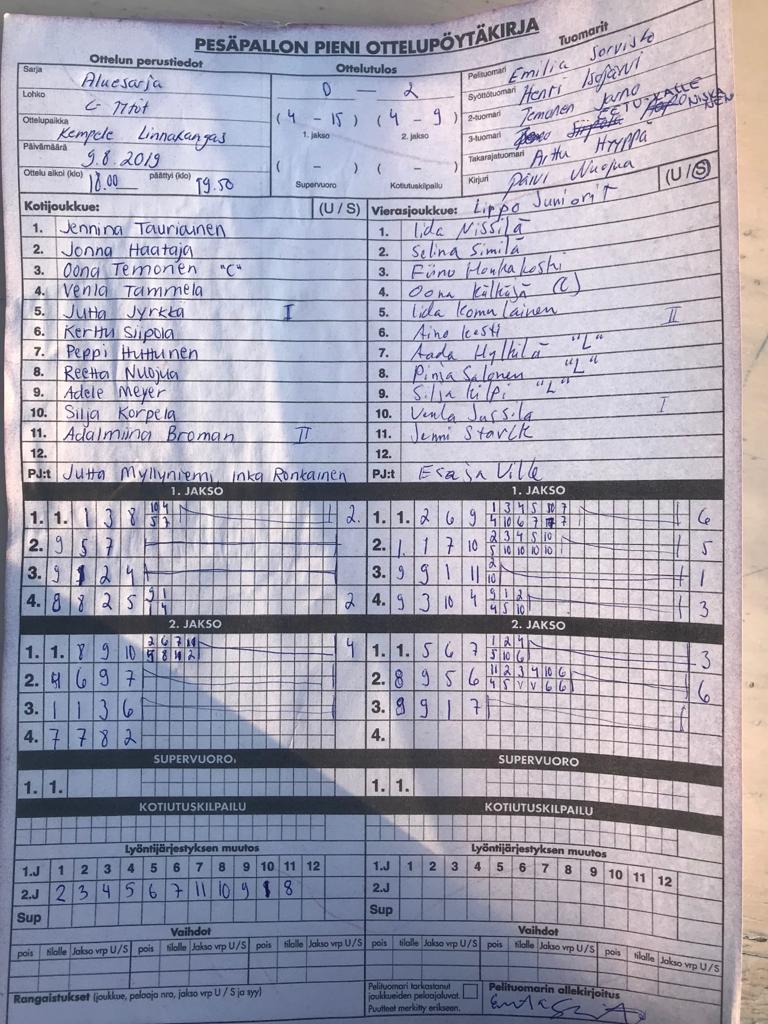 PESÄPALLON PIENI OTTELUPÖYTÄKIRJA
Ottelun perustiedot
Sarja Aluesarja
Lohko C-Tytöt
Ottelupaikka Kempele Linnakangas
Päivämäärä 9.8.2019
Ottelu alkoi (klo) 18.00 päättyi (klo) 19.50
Ottelutulos
0 — 2
(4 - 15) (4 - 9)
1. jakso 2. jakso
( - ) ( - )
Supervuoro Kotiutuskilpailu
Tuomarit
Pelituomari Emilia Sorvisto
Syöttötuomari Henri Isojärvi
2-tuomari Temonen Jarno
3-tuomari EETU-KALLE NISKANEN
Takarajatuomari Arttu Hyyppä
Kirjuri Päivi Nuojua
Kotijoukkue: (U / S)
1. Jennina Tauriainen
2. Jonna Haataja
3. Oona Temonen "C"
4. Venla Tammela
5. Jutta Jyrkkä I
6. Kerttu Siipola
7. Peppi Huttunen
8. Reetta Nuojua
9. Adele Meyer
10. Silja Korpela
11. Adalmiina Broman II
12.
PJ:t Jutta Myllyniemi, Inka Ronkainen
Vierasjoukkue: Lippo Juniorit (U / S)
1. Iida Nissilä
2. Selina Similä
3. Eiinu Honkakoski
4. Oona Kälkäjä (C)
5. Iida Komulainen II
6. Aino Kesti
7. Aada Hylkilä "L"
8. Pinja Salonen "L"
9. Silja Kilpi "L"
10. Venla Jussila I
11. Jenni Starck
12.
PJ:t Esa ja Ville
1. JAKSO
1. 1. 1 3 8 10 4 2.
5 7
2. 9 5 7
3. 9 1 2 4
4. 8 8 2 5 9 1 2
1 4
1. JAKSO
1. 1. 2 6 9 1 3 4 5 10 7 6
4 10 6 7 7
2. 1. 1 7 10 2 3 4 5 10 5
5 10 10 10 10
3. 9 9 1 11 2 1
10
4. 9 3 10 4 9 1 2 3
4 5 10
2. JAKSO
1. 1. 8 9 10 2 6 7 10 4
8 2
2. 4 6 9 7
3. 1 1 3 6
4. 7 7 8 2
2. JAKSO
1. 1. 5 6 7 1 2 4 3
5 10 6
2. 8 9 5 6 11 2 3 4 10 6 6
4 5 V V 6 6
3. 8 9 1 7
4.
SUPERVUORO
1. 1.
SUPERVUORO
1. 1.
KOTIUTUSKILPAILU
KOTIUTUSKILPAILU
Lyöntijärjestyksen muutos
1.J 1 2 3 4 5 6 7 8 9 10 11 12
2.J 2 3 4 5 6 7 11 10 9 1 8
Sup
Lyöntijärjestyksen muutos
1.J 1 2 3 4 5 6 7 8 9 10 11 12
2.J
Sup
Vaihdot
pois tilalle Jakso vrp U/S pois tilalle Jakso vrp U/S pois tilalle Jakso vrp U/S
Vaihdot
pois tilalle Jakso vrp U/S pois tilalle Jakso vrp U/S pois tilalle Jakso vrp U/S
Rangaistukset (joukkue, pelaaja nro, jakso vrp U / S ja syy)
Pelituomari tarkastanut
joukkueiden pelaajaluvat.
Puutteet merkitty erikseen.
Pelituomarin allekirjoitus